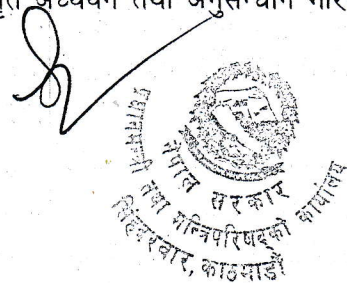 अध्ययन तथा अनुसन्धान
नेपाल सरकार
प्रधानमन्त्री तथा मन्त्रिपरिषद्को कार्यालय
सिंहदरवार, काठमाडौं